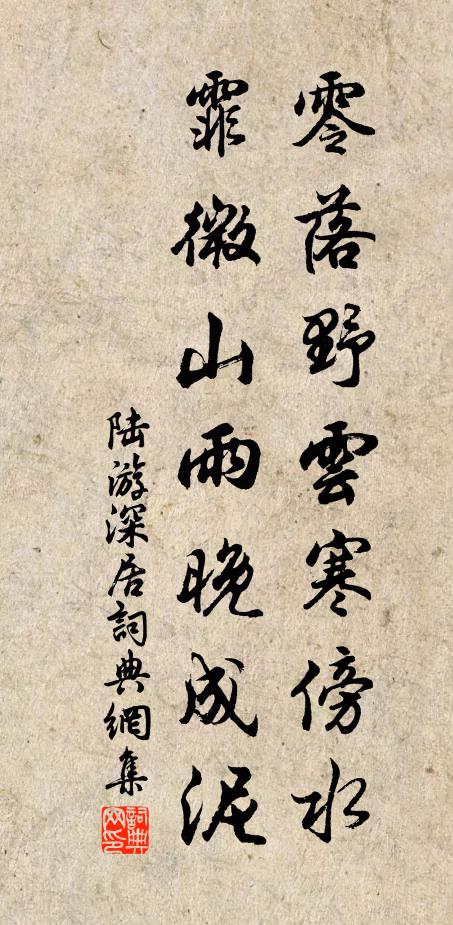 零落野雲寒傍水
霏微山雨晚成泥
陆游深居詞典網集
詞典网印